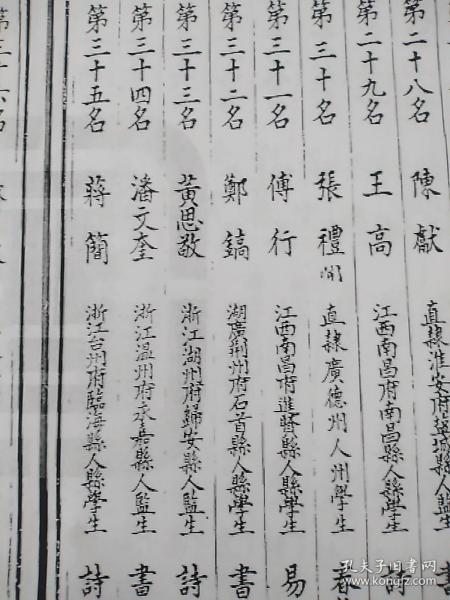 第二十八名 陳獻 直隸淮安府鹽城縣人縣學生 書
第二十九名 王高 江西南昌府南昌縣人縣學生 詩
第三十名 張禮 直隸廣德州人州學生 春
第三十一名 傅行 江西南昌府進賢縣人縣學生 易
第三十二名 鄭鎬 湖廣荆州府石首縣人縣學生 書
第三十三名 黃思敬 浙江湖州府歸安縣人監生 詩
第三十四名 潘文奎 浙江温州府永嘉縣人監生 書
第三十五名 蔣簡 浙江台州府臨海縣人縣學生 詩
第三十六名
孔夫子旧书网